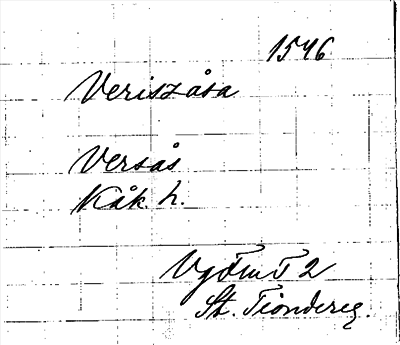 1546
Veriszåsa
Versås
Kåk. h.
VgFmT 2
St. Tiondereg.